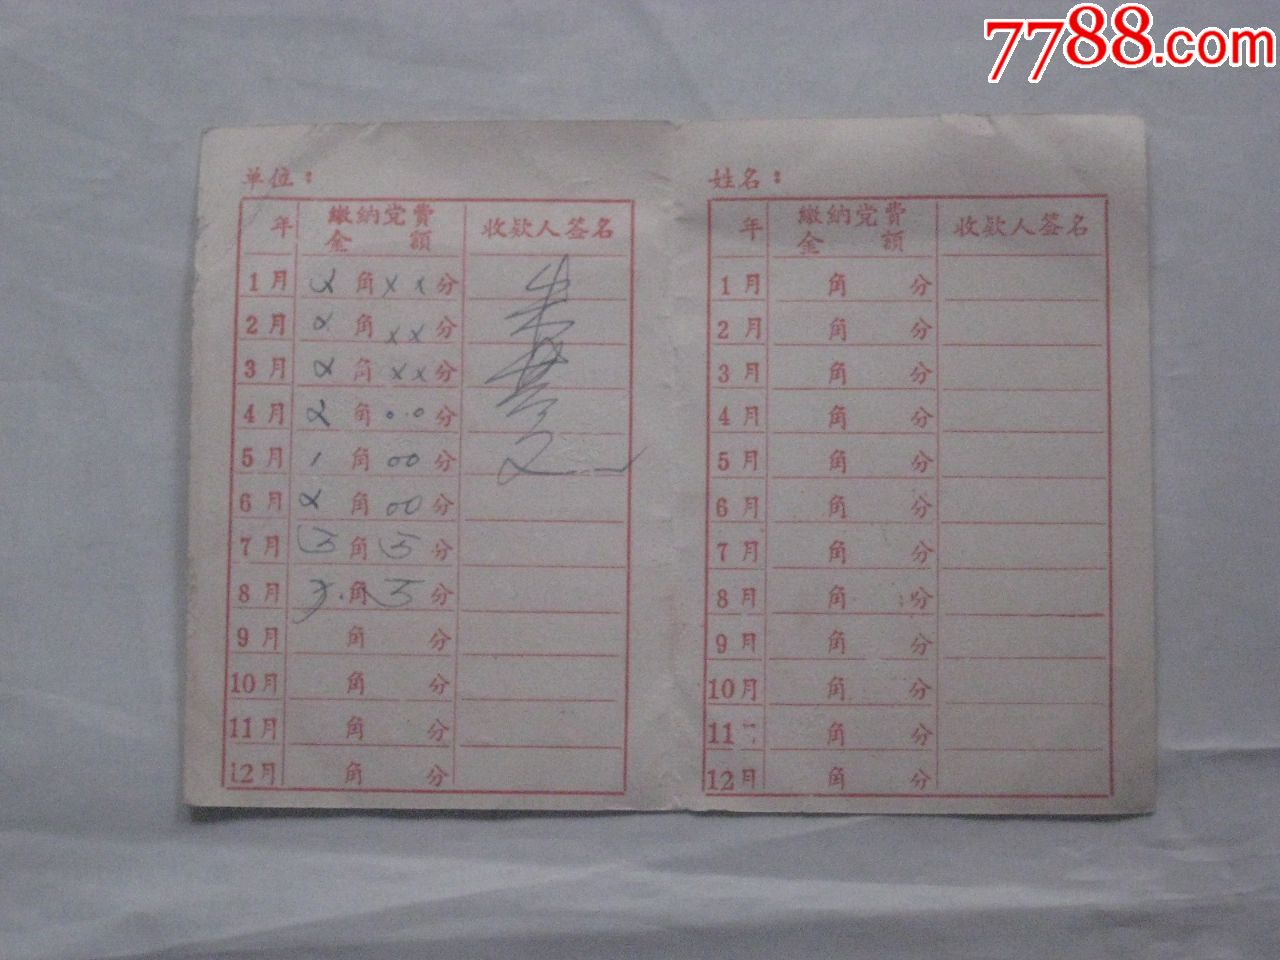 7788.com
单位：
年 繳納党費金額 收欵人签名
1月 2角××分
2月 2角××分
3月 2角××分
4月 2角00分
5月 1角00分
6月 2角00分
7月 角 分
8月 角 分
9月 角 分
10月 角 分
11月 角 分
12月 角 分
姓名：
年 繳納党費金額 收欵人签名
1月 角 分
2月 角 分
3月 角 分
4月 角 分
5月 角 分
6月 角 分
7月 角 分
8月 角 分
9月 角 分
10月 角 分
11月 角 分
12月 角 分